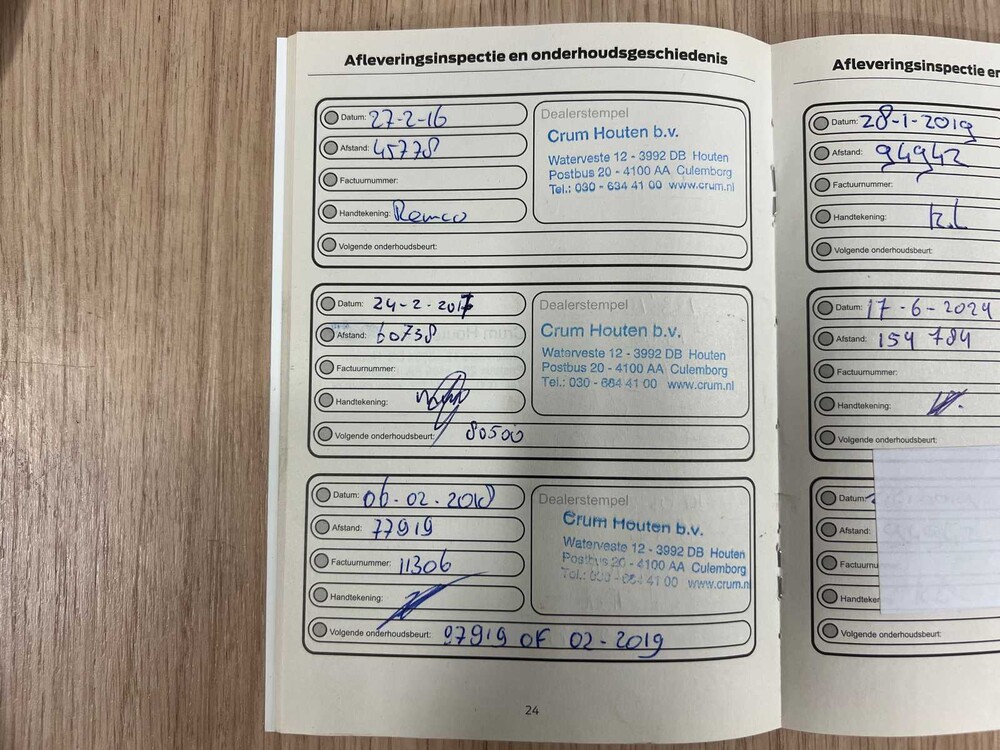 Afleveringsinspectie en onderhoudsgeschiedenis
Datum: 27-2-16
Afstand: 45778
Factuurnummer:
Handtekening: Remco
Volgende onderhoudsbeurt:
Dealerstempel
Crum Houten b.v.
Waterveste 12 - 3992 DB Houten
Postbus 20 - 4100 AA Culemborg
Tel.: 030 - 634 41 00 www.crum.nl
Datum: 24-2-2017
Afstand: 60738
Factuurnummer:
Handtekening:
Volgende onderhoudsbeurt: 80500
Dealerstempel
Crum Houten b.v.
Waterveste 12 - 3992 DB Houten
Postbus 20 - 4100 AA Culemborg
Tel.: 030 - 634 41 00 www.crum.nl
Datum: 06-02-2018
Afstand: 77919
Factuurnummer: 11306
Handtekening:
Volgende onderhoudsbeurt: 97919 OF 02-2019
Dealerstempel
Crum Houten b.v.
Waterveste 12 - 3992 DB Houten
Postbus 20 - 4100 AA Culemborg
Tel.: 030 - 634 41 00 www.crum.nl
24
Afleveringsinspectie en
Datum: 28-1-2019
Afstand: 94942
Factuurnummer:
Handtekening:
Volgende onderhoudsbeurt:
Datum: 17-6-2024
Afstand: 154 784
Factuurnummer:
Handtekening:
Volgende onderhoudsbeurt:
Datum:
Afstand:
Factuurnu
Handteker
Volgende onderhoudsbeurt: